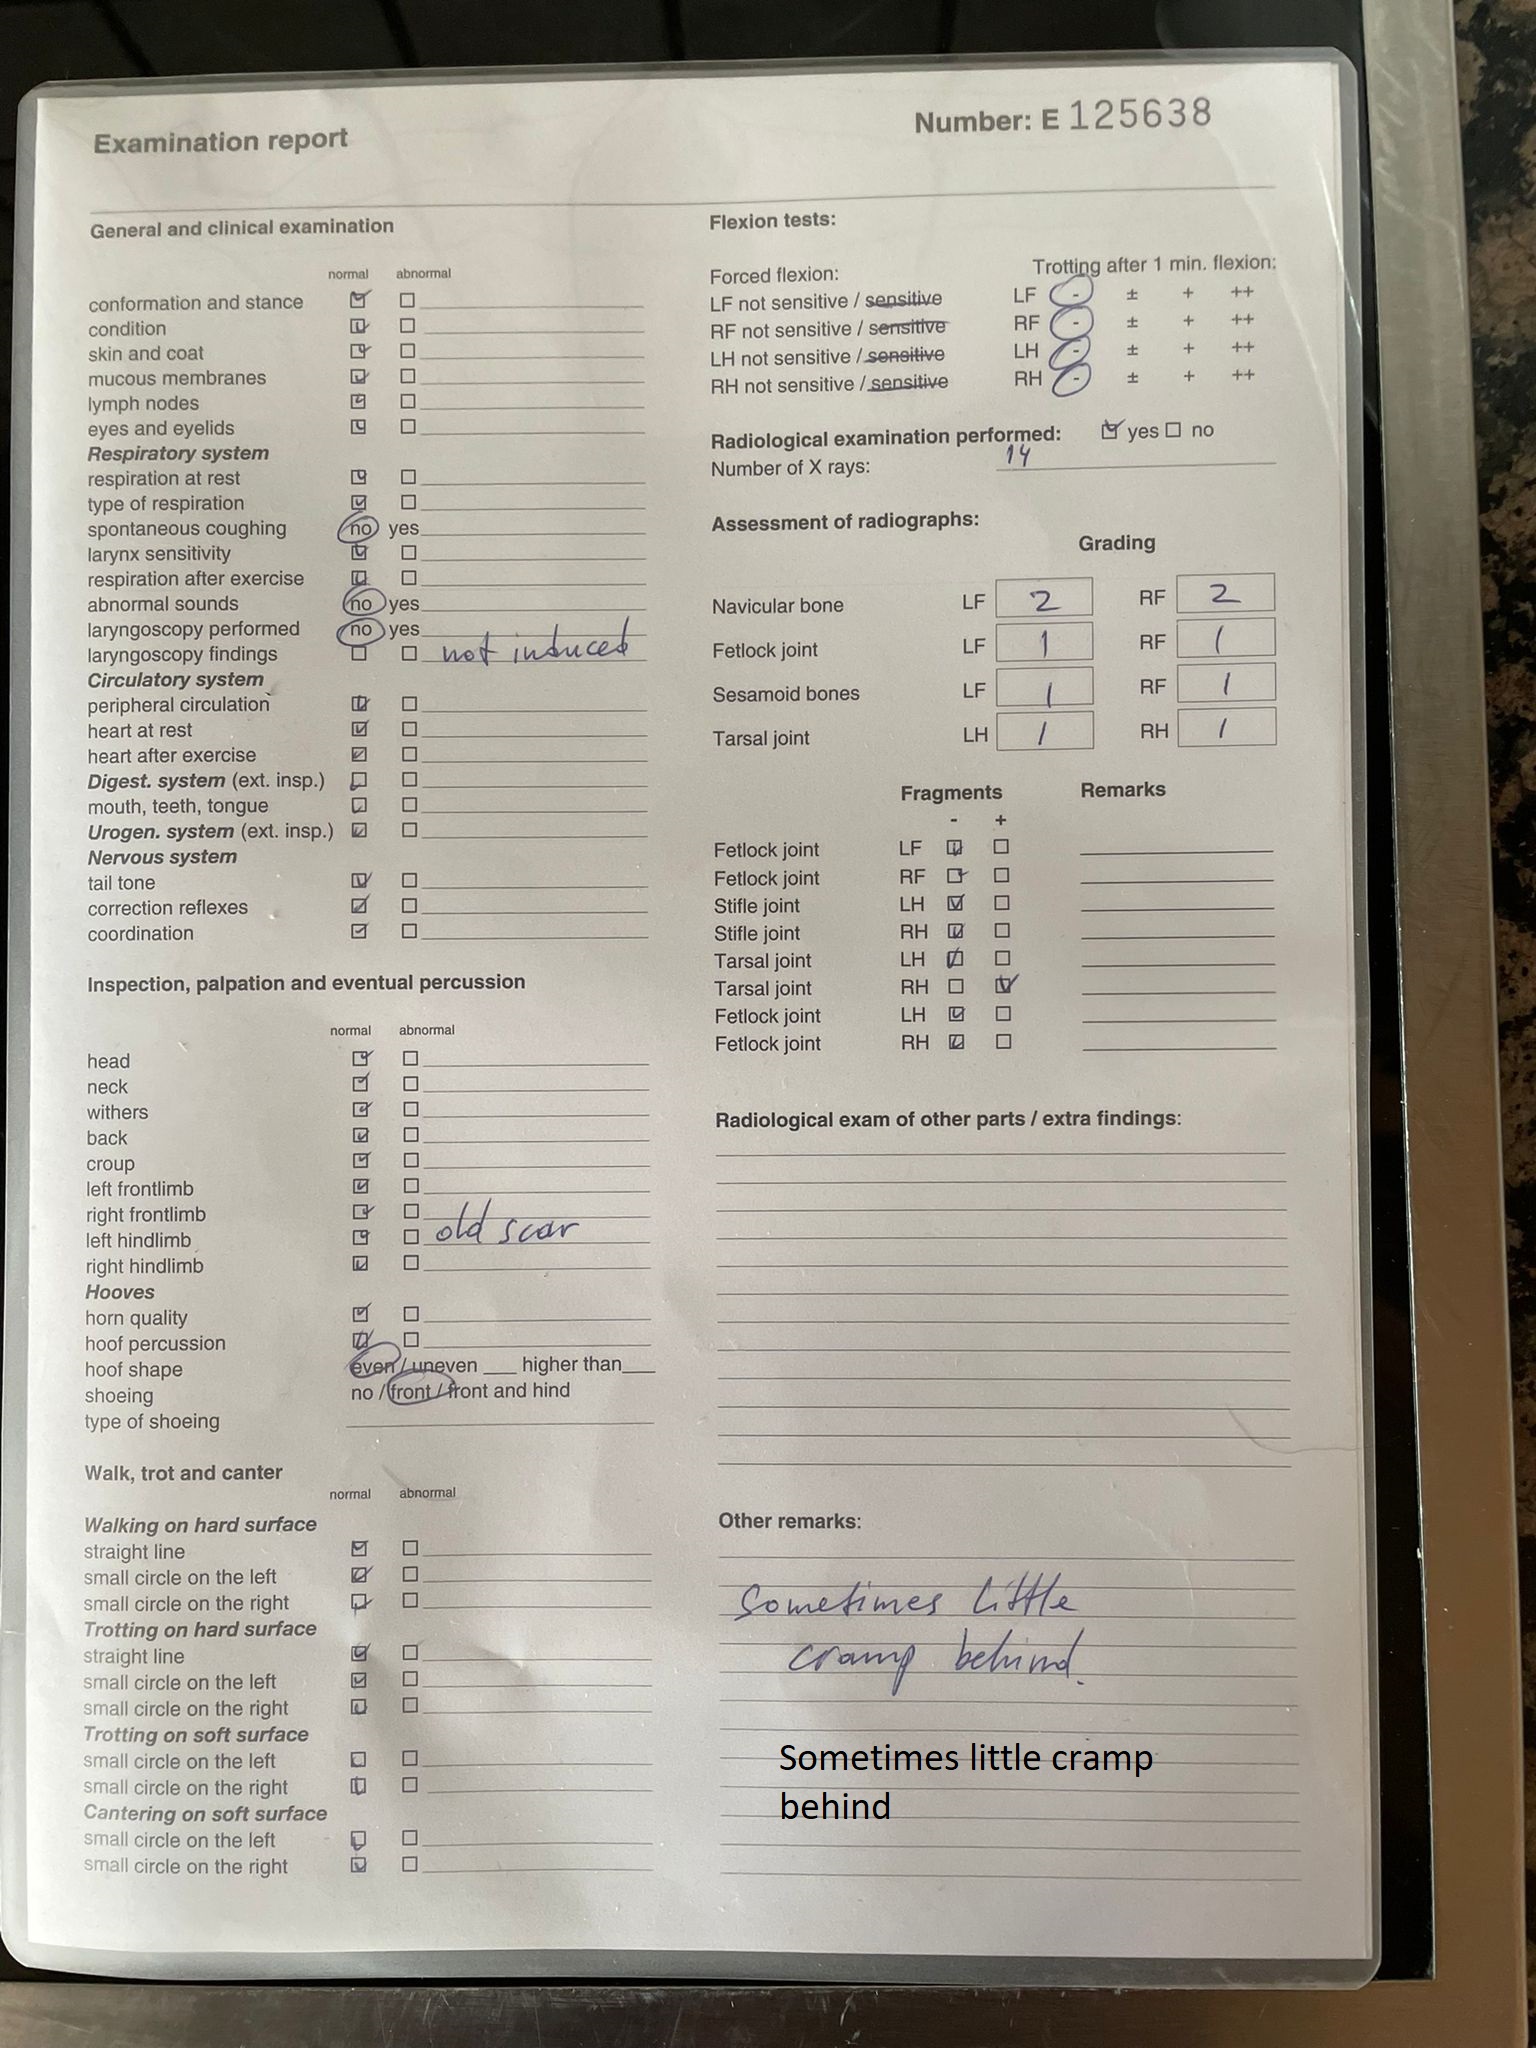 Examination report
Number: E 125638
General and clinical examination
normal abnormal
conformation and stance
condition
skin and coat
mucous membranes
lymph nodes
eyes and eyelids
Respiratory system
respiration at rest
type of respiration
spontaneous coughing no yes
larynx sensitivity
respiration after exercise
abnormal sounds no yes
laryngoscopy performed no yes
laryngoscopy findings not induced
Circulatory system
peripheral circulation
heart at rest
heart after exercise
Digest. system (ext. insp.)
mouth, teeth, tongue
Urogen. system (ext. insp.)
Nervous system
tail tone
correction reflexes
coordination
Inspection, palpation and eventual percussion
normal abnormal
head
neck
withers
back
croup
left frontlimb
right frontlimb
left hindlimb old scar
right hindlimb
Hooves
horn quality
hoof percussion
hoof shape even / uneven ___ higher than ___
shoeing no / front / front and hind
type of shoeing
Walk, trot and canter
normal abnormal
Walking on hard surface
straight line
small circle on the left
small circle on the right
Trotting on hard surface
straight line
small circle on the left
small circle on the right
Trotting on soft surface
small circle on the left
small circle on the right
Cantering on soft surface
small circle on the left
small circle on the right
Flexion tests:
Forced flexion: Trotting after 1 min. flexion:
LF not sensitive / sensitive LF - ± + ++
RF not sensitive / sensitive RF - ± + ++
LH not sensitive / sensitive LH - ± + ++
RH not sensitive / sensitive RH - ± + ++
Radiological examination performed: yes no
Number of X rays: 14
Assessment of radiographs:
Grading
Navicular bone LF 2 RF 2
Fetlock joint LF 1 RF 1
Sesamoid bones LF 1 RF 1
Tarsal joint LH 1 RH 1
Fragments Remarks
- +
Fetlock joint LF
Fetlock joint RF
Stifle joint LH
Stifle joint RH
Tarsal joint LH
Tarsal joint RH
Fetlock joint LH
Fetlock joint RH
Radiological exam of other parts / extra findings:
Other remarks:
Sometimes little
cramp behind.
Sometimes little cramp
behind